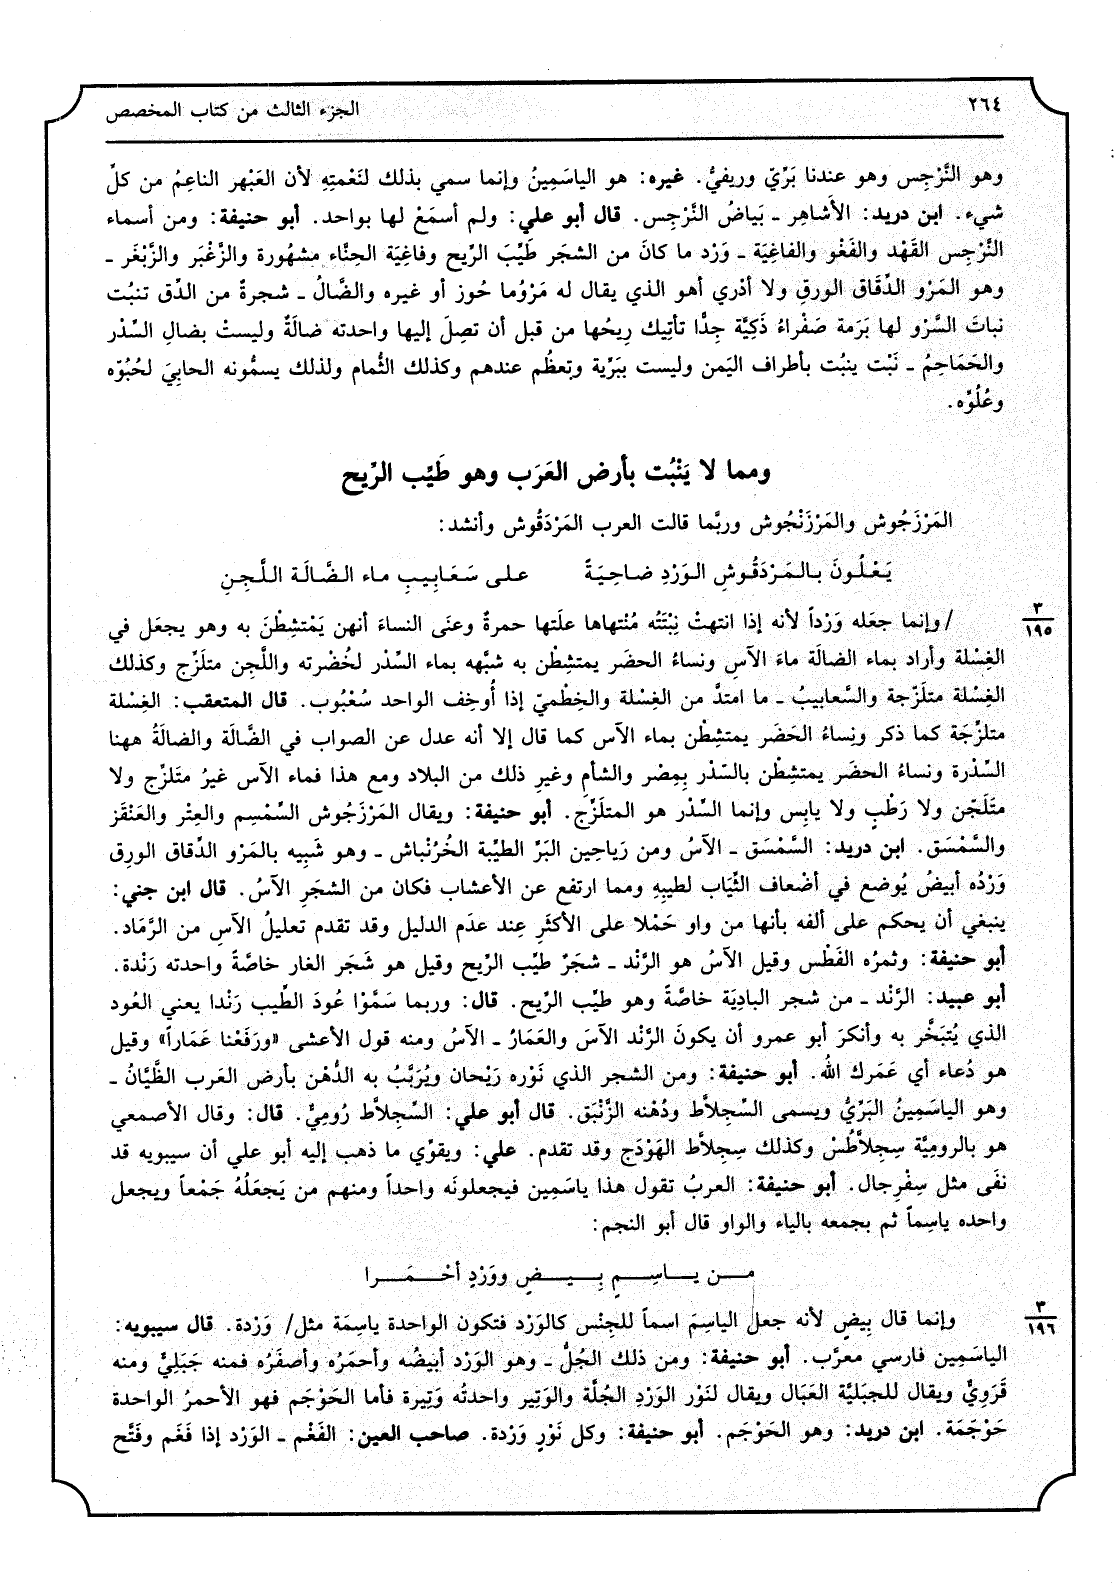 ٢٦٤ الجزء الثالث من كتاب المخصص
وهو النَّرْجِس وهو عندنا بَرِّيّ وريفيُّ. غيره: هو الياسَمِينُ وإنما سمي بذلك لنَعْمتِهِ لأن العَبْهر الناعِمُ من كلِّ
شيء. ابن دريد: الأَشاهِر ـ بَياضُ النَّرْجِس. قال أبو علي: ولم أسمَعْ لها بواحد. أبو حنيفة: ومن أسماء
النَّرْجِس القَهْد والفَغْو والفاغِيَة ـ وَرْد ما كانَ من الشجَر طَيِّبَ الرِّيح وفاغِيَة الحِنَّاء مشهُورة والزَّغْبَر والزَّبْغَر ـ
وهو المَرْو الدِّقَاق الورقِ ولا أدْري أهو الذي يقال له مَرْوُما حُوز أو غيره والضَّالُ ـ شجرةٌ من الدِّق تنبُت
نباتَ السَّرْو لها بَرَمة صَفْراءُ ذَكِيَّة جِدًّا تأتِيك رِيحُها من قبل أن تصِلَ إليها واحدته ضالَةٌ وليستْ بضالِ السِّدْر
والحَمَاحِمُ ـ نَبْت ينبُت بأطراف اليَمن وليست ببَرِّية وتعظُم عندهم وكذلك الثُّمام ولذلك يسمُّونه الحابِيَ لحُبُوّه
وعُلُوِّه.
ومما لا يَنْبُت بأرض العَرَب وهو طَيِّب الرِّيح
المَرْزَجُوش والمَرْزَنْجُوش وربَّما قالت العرب المَرْدَقُوش وأنشد:
يَعْلُونَ بالمَرْدَقُوشِ الوَرْدِ ضاحِيَةً على سَعَابِيبِ ماء الضَّالَة اللَّجِنِ
٣
١٩٥
/ وإنما جعَله وَرْداً لأنه إذا انتهتْ نِبْتَتُه مُنْتهاها علَتها حمرةٌ وعنَى النساءَ أنهن يَمْتشِطْنَ به وهو يجعَل في
الغِسْلة وأراد بماء الضالَة ماءَ الآسِ ونساءُ الحضَر يمتشِطْن به شبَّهه بماء السِّدْر لخُضْرته واللَّجِن متلَزِّج وكذلك
الغِسْلة متلَزِّجة والسَّعابيبُ ـ ما امتدَّ من الغِسْلة والخِطْميّ إذا أُوخِف الواحد سُعْبُوب. قال المتعقب: الغِسْلة
متلزِّجَة كما ذكر ونِساءُ الحَضَر يمتشِطْن بماء الآس كما قال إلا أنه عدل عن الصواب في الضَّالَة والضالَةُ ههنا
السِّدْرة ونساءُ الحضَر يمتشِطْن بالسِّدْر بِمِصْر والشأمِ وغيرِ ذلك من البلاد ومع هذا فماء الآس غيرُ متَلزِّج ولا
متَلَجِّن ولا رَطْبٍ ولا يابِس وإنما السِّدْر هو المتلَزِّج. أبو حنيفة: ويقال المَرْزَجُوش السِّمْسِم والعِتْر والعَنْقَز
والسَّمْسَق. ابن دريد: السَّمْسَق ـ الآسُ ومن رَياحِين البَرِّ الطيِّبة الخُرْنْباش ـ وهو شَبِيه بالمَرْو الدِّقاق الورِق
وَرْدُه أبيضُ يُوضع في أضْعاف الثِّيَاب لطيبِهِ ومما ارتفع عن الأعشاب فكان من الشجَرِ الآسُ. قال ابن جني:
ينبغي أن يحكم على ألفه بأنها من واو حَمْلا على الأكثَرِ عِند عدَم الدليل وقد تقدم تعليلُ الآسِ من الرَّمَاد.
أبو حنيفة: وثمرُه الفَطْس وقيل الآسُ هو الرَّنْد ـ شجَرٌ طيِّب الرِّيح وقيل هو شَجَر الغار خاصَّةً واحدته رَنْدة.
أبو عبيد: الرَّنْد ـ من شجر البادِيَة خاصَّةً وهو طيِّب الرِّيح. قال: وربما سَمَّوْا عُودَ الطِّيب رَنْدا يعني العُود
الذي يُتبَخَّر به وأنكرَ أبو عمرو أن يكونَ الرَّنْد الآسَ والعَمَارُ ـ الآسُ ومنه قول الأعشى «ورَفَعْنا عَمَاراً» وقيل
هو دُعاء أي عَمَرك اللَّهُ. أبو حنيفة: ومن الشجر الذي نَوْره رَيْحان ويُرَبَّبُ به الدُّهْن بأرض العَرب الظَّيَّانُ ـ
وهو الياسَمِينُ البَرِّيُّ ويسمى السِّجلاَّط ودُهْنه الزَّنْبَق. قال أبو علي: السِّجلاَّط رُومِيٌّ. قال: وقال الأصمعي
هو بالرومِيَّة سِجلاَّطُسْ وكذلك سِجلاَّط الهَوْدَج وقد تقدم. علي: ويقوِّي ما ذهب إليه أبو علي أن سيبويه قد
نفَى مثل سِفْرِجال. أبو حنيفة: العربُ تقول هذا ياسَمِين فيجعلونَه واحداً ومنهم من يَجعَلُهُ جَمْعاً ويجعل
واحده ياسِماً ثم بجمعه بالياء والواو قال أبو النجم:
من ياسِمٍ بِيضٍ ووَرْدٍ أحْمَرا
٣
١٩٦
وإنما قال بِيضٍ لأنه جعل الياسِمَ اسماً للجِنْس كالوَرْد فتكون الواحدة ياسِمَة مثل/ وَرْدة. قال سيبويه:
الياسَمِين فارسي معرَّب. أبو حنيفة: ومن ذلك الجُلُّ ـ وهو الوَرْد أبيضُه وأحمَرُه وأصفَرُه فمنه جَبَلِيٌّ ومنه
قَرَوِيٌّ ويقال للجبَليَّة العَبَال ويقال لنَوْر الوَرْدِ الجُلَّة والوَتِير واحدتُه وَتِيرة فأما الحَوْجَم فهو الأحمرُ الواحدة
حَوْجَمَة. ابن دريد: وهو الحَوْجَم. أبو حنيفة: وكل نَوْرٍ وَرْدة. صاحب العين: الفَغْم ـ الوَرْد إذا فَغَم وفَتَّح